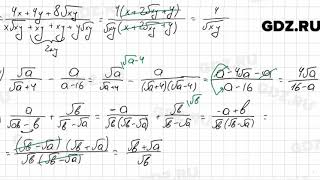 GDZ.RU
= (4x + 4y + 8√xy) / (x√xy + xy + xy + y√xy) = 4(x + 2√xy + y) / √xy(x + 2√xy + y) = 4 / √xy
2xy
√a / (√a+4) − a / (a−16) = √a / (√a+4) − a / ((√a+4)(√a−4)) = (a − 4√a − a) / (a−16) = 4√a / (16−a)
√a−4
a / (√ab − b) + √b / (√b−√a) = −a / √b(√b−√a) + √b / (√b−√a) = (−a+b) / √b(√b−√a) =
√b
= (√b−√a)(√b+√a) / √b(√b−√a) = (√b+√a) / √b